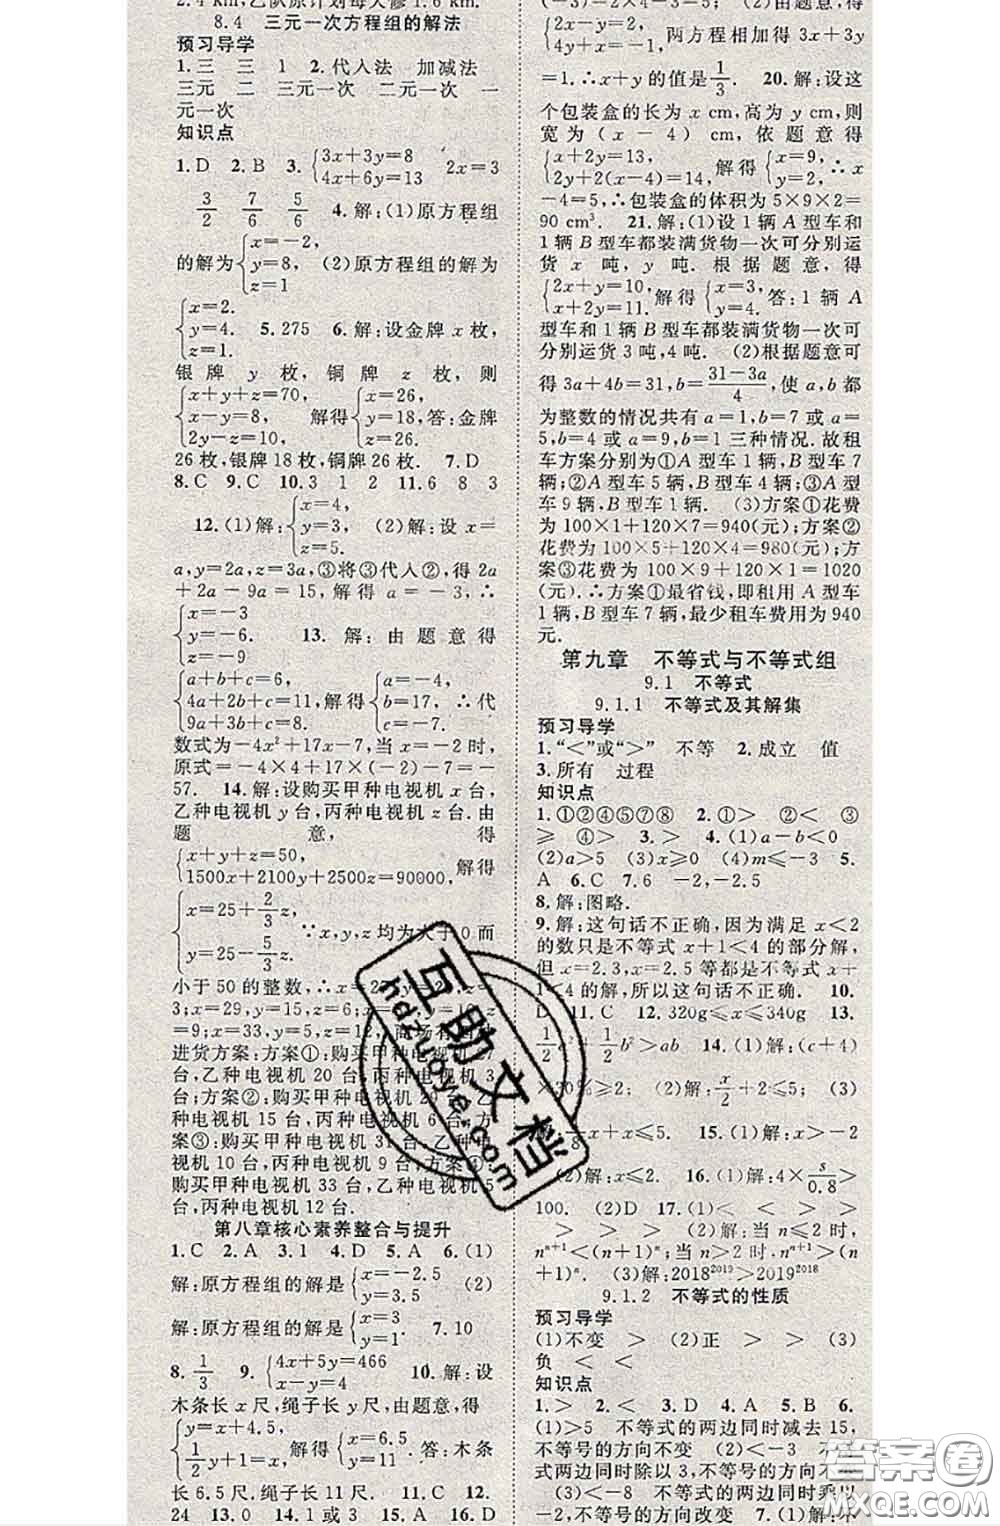 8.4 三元一次方程组的解法
预习导学
1.三 三 1 2.代入法 加减法
三元 二 三元一次 二元一次 一
元一次
知识点
1.D 2.B 3.{3x+3y=8 4x+6y=13 2x=3
3/2 7/6 5/6 4.解:(1)原方程组
的解为{x=-2, y=8, z=1 (2)原方程组的解为
{x=2. y=4. z=1. 5.275 6.解:设金牌 x 枚,
银牌 y 枚,铜牌 z 枚,则
{x+y+z=70, x-y=8, 2y-z=10, 解得{x=26, y=18, z=26. 答:金牌
26 枚,银牌 18 枚,铜牌 26 枚. 7.D
8.C 9.C 10.3 1 2 11.6 8 3
12.(1)解:{x=4, y=3, z=5. (2)解:设 x=
a,y=2a,z=3a,③将③代入②,得 2a
+2a-9a=15,解得 a=-3,∴
{x=-3 y=-6. z=-9 13.解:由题意得
{a+b+c=6, 4a+2b+c=20, 9a+3b+c=8. 解得{a=-4, b=17, c=-7. ∴代
数式为-4x²+17x-7,当 x=-2 时,
原式=-4×4+17×(-2)-7=-
57. 14.解:设购买甲种电视机 x 台,
乙种电视机 y 台,丙种电视机 z 台.由
题意,得
{x+y+z=50, 1500x+2100y+2500z=90000, 解得
{x=25+2/3z, y=25-5/3z. ∵x,y,z 均为大于 0 而
小于 50 的整数,
3;x=29,y=15,z=6;x=31,y=10,z
=9;x=33,y=5,z=12,
进货方案:方案①:购买甲种电视机 27
台,乙种电视机 20 台,丙种电视机 3
台;方案②:购买甲种电视机 29 台,乙
种电视机 15 台,丙种电视机 6 台;方
案③:购买甲种电视机 31 台,乙种电视
机 10 台,丙种电视机 9 台;方案④:
购买甲种电视机 33 台,乙种电视机 5
台,丙种电视机 12 台.
第八章核心素养整合与提升
1.C 2.A 3.1 4.D 5.A 6.(1)
解:原方程组的解是{x=-2.5 y=3.5 (2)
解:原方程组的解是{x=3 y=1. 7.10
8.1/3 9.{4x+5y=466 x-y=4 10.解:设
木条长 x 尺,绳子长 y 尺,由题意,得
{y=x+4.5, 1/2y+1=x, 解得{x=6.5, y=11 .答:木条
长 6.5 尺,绳子长 11 尺. 11.C 12.
24 13.0 14.1或3 15.A 16.D
(-3)-2×2-4-3=5; (2)由题意,得
{3x+2y=2, 4y+x=-1, 两方程相加得 3x+3y
=1.∴x+y 的值是1/3. 20.解:设这
个包装盒的长为 x cm,高为 y cm,则
宽为(x-4) cm,依题意得
{x+2y=13, x-4+2y=14, 解得{x=9, y=2, ∴x
-4=5,∴包装盒的体积为 5×9×2=
90 cm³. 21.解:(1)设 1 辆 A 型车和
1 辆 B 型车都装满货物一次可分别运
货 x 吨,y 吨.根据题意,得
{2x+y=10, x+2y=11. 解得{x=3, y=4. 答:1 辆 A
型车和 1 辆 B 型车都装满货物一次可
分别运货 3 吨,4 吨. (2)根据题意可
得 3a+4b=31,b=31-3a/4,使 a,b 都
为整数的情况共有 a=1,b=7 或 a=
5,b=4 或 a=9,b=1 三种情况.故租
车方案分别为①A 型车 1 辆,B 型车 7
辆;②A 型车 5 辆,B 型车 4 辆;③A 型
车 9 辆,B 型车 1 辆. (3)方案①花费
为 100×1+120×7=940(元);方案②
花费为 100×5+120×4=980(元);方
案③花费为 100×9+120×1=1020
(元).∴方案①最省钱,即租用 A 型车
1 辆,B 型车 7 辆,最少租车费用为 940
元.
第九章 不等式与不等式组
9.1 不等式
9.1.1 不等式及其解集
预习导学
1.“<”或“>” 不等 2.成立 值
3.所有 过程
知识点
1.①②④⑤⑦⑧ 2.①> ②< ③
≥ ④> 3.> 4.(1)a-b<0
(2)a>5 (3)x≥0 (4)m≤-3 5.
A 6.C 7.6 -2,-2.5
8.解:图略.
9.解:这句话不正确,因为满足 x<2
的数只是不等式 x+1<4 的部分解,
但 x=2.3,x=2.5 等都是不等式 x+
1<4 的解,所以这句话不正确. 10.
D 11.C 12.320g≤x≤340g 13.
1/2a²+1/2b²>ab 14.(1)解:(c+4)
×30%≥2; (2)解:x/2+2≤5; (3)
解:1/8x+x≤5. 15.(1)解:x>-2
(2)解:x≤2. 16.解:4×s/0.8>
100. (2)D 17.(1)< < > >
> > > (2)解:当 n≤2 时,
nⁿ⁺¹<(n+1)ⁿ;当 n>2 时,nⁿ⁺¹>(n
+1)ⁿ. (3)解:2018²⁰¹⁹>2019²⁰¹⁸
9.1.2 不等式的性质
预习导学
(1)不变 > (2)正 > > (3)
负 < <
知识点
1.> 2.< 3.D 4.A 5.B 6.
(1)>5 不等式的两边同时减去 15,
不等号的方向不变 (2)<-3
式两边同时除以 3,不等号的方向不
(3)>-8 不等式的两边同时乘以
-2,不等号的方向改变 7.(1)解:
互助文档
hdzuoye.com
答案圈
MXQE.COM